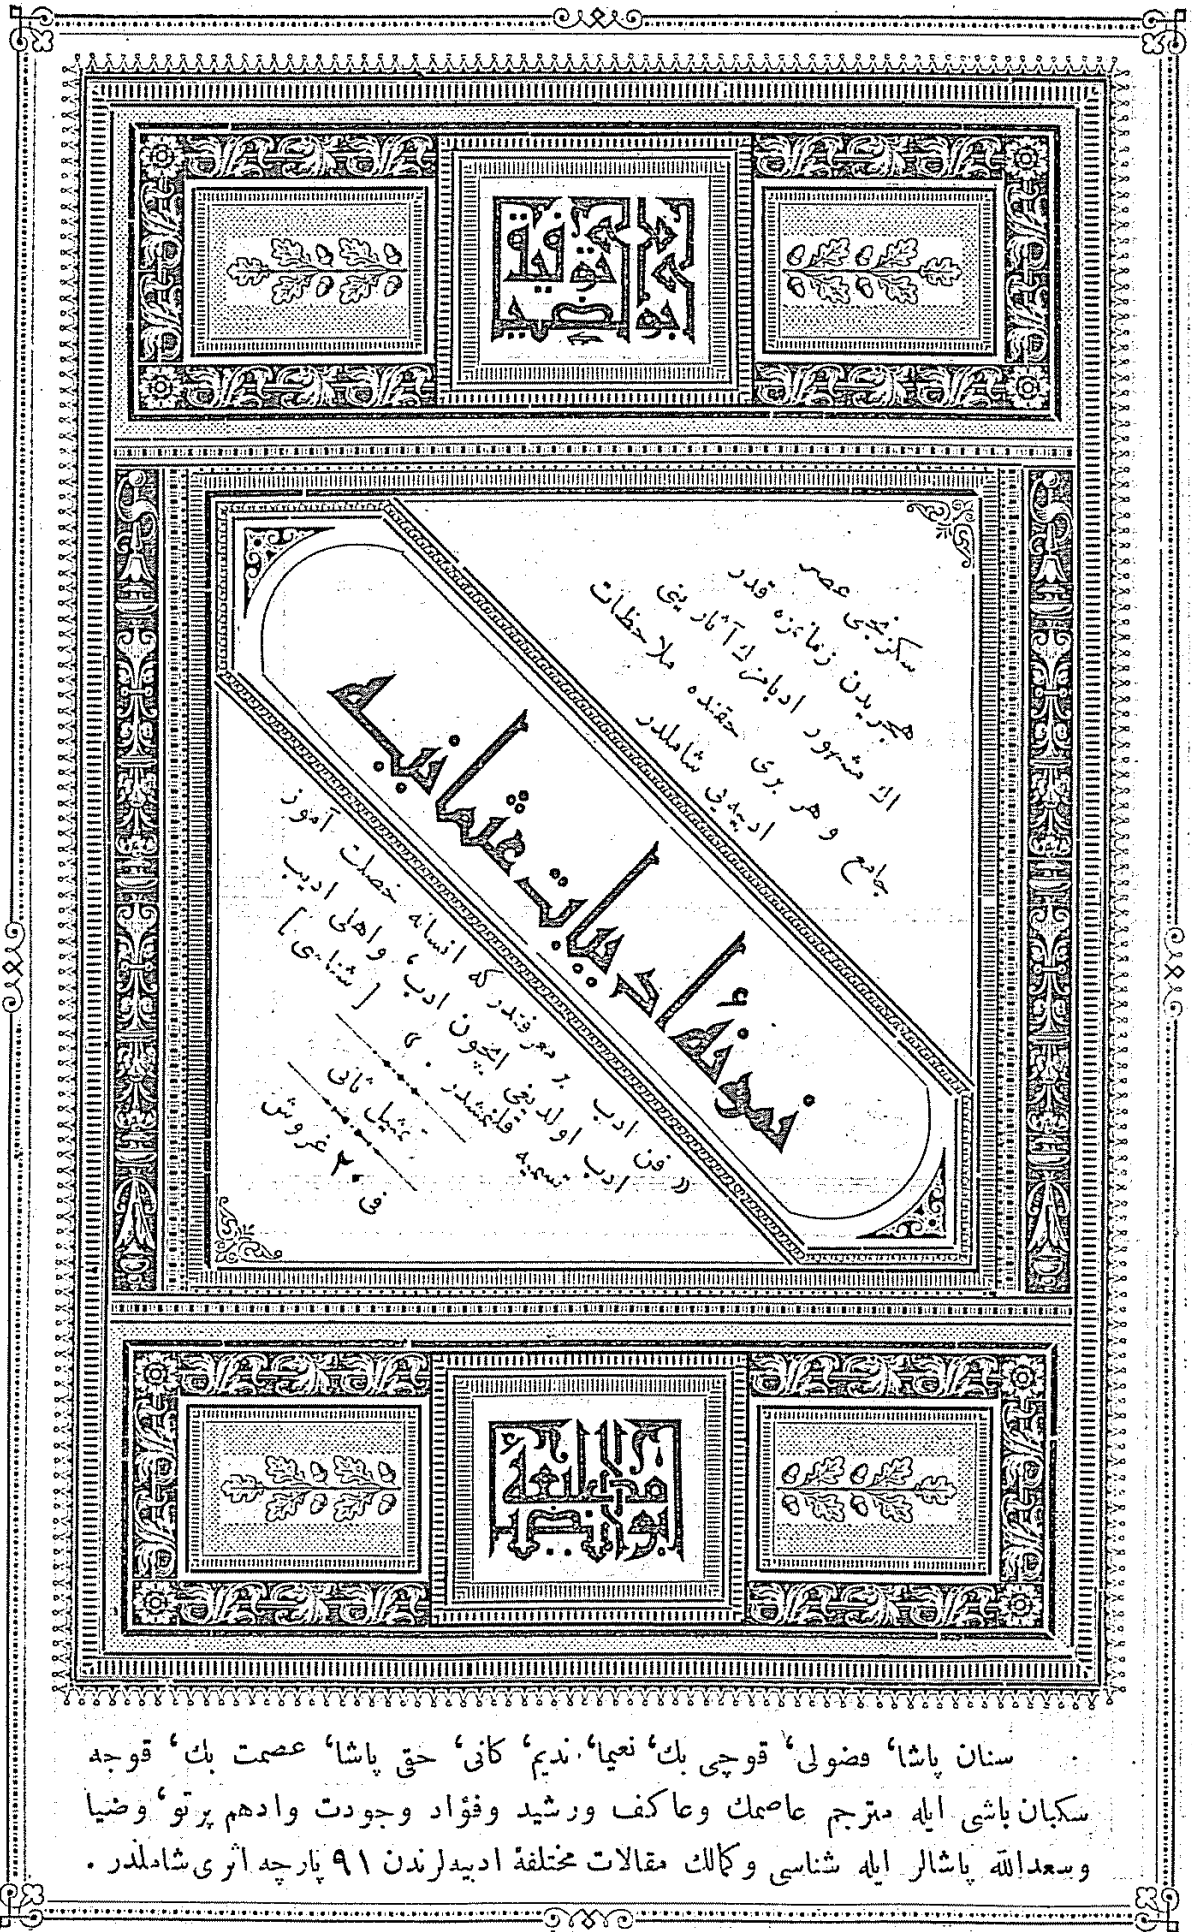 سكزنجی عصر
هجریدن زمانمزه قدر
اك مشهور ادبامزك آثارینی
جامع و هر بری حقنده ملاحظات
ادبیه‌یی شاملدر
نمونهٔ ادبیات عثمانیه
« فن ادب بر معرفتدر كه انسانه خصلت آموز
ادب اولدیغی ایچون ادب، و اهلی ادیب
تسمیه قلنمشدر . » [ شناسی ]
تمثیل ثانی
فی ٢٠ غروش
ابوالضیا
سنان پاشا، فضولی، قوچی بك، نعیما، ندیم، كانی، حقی پاشا، عصمت بك، قوجه
سكبان باشی ایله مترجم عاصمك وعاكف ورشید وفؤاد وجودت وادهم پرتو، وضیا
وسعدالله پاشالر ایله شناسی وكمالك مقالات مختلفهٔ ادبیه‌لرندن ٩١ پارچه اثری شاملدر .